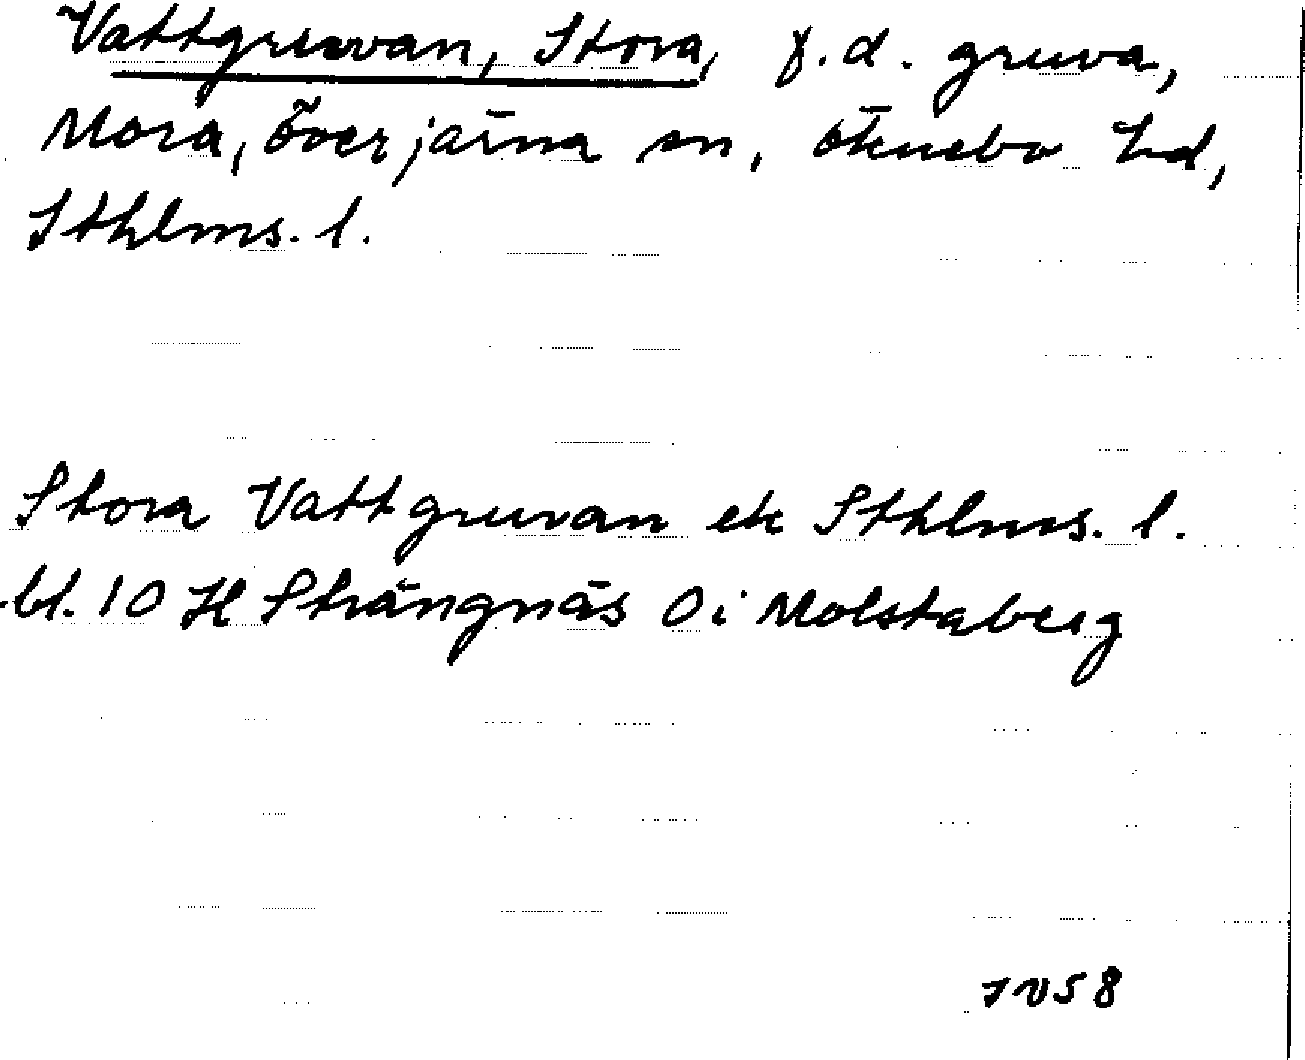 Vattgruvan, Stora, f.d. gruva,
Mora, Överjärna sn, Öknebo hd,
Sthlms. l.
Stora Vattgruvan ek Sthlms. l.
bl. 10 H Strängnäs Oi Molstaberg
58